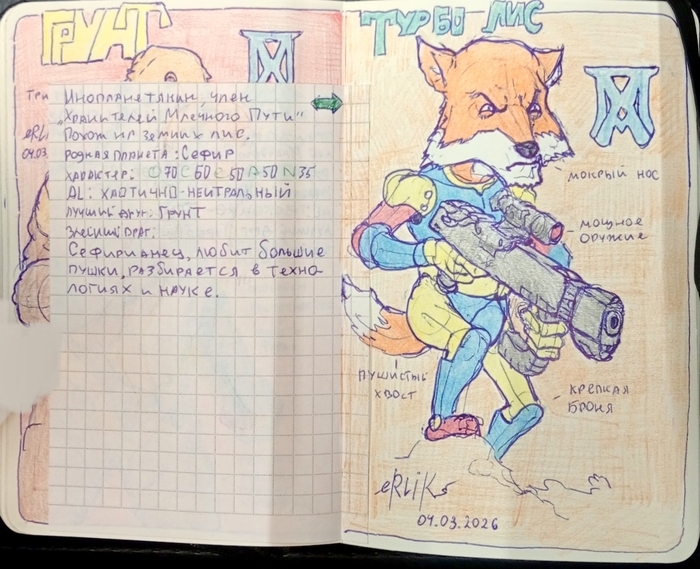 ГРУНТ
Три
eRLi
04.03.
Инопланетянин, член
„Хранителей Млечного Пути"
Похож на земных лис.
родная планета: Сефир
характер: O70 C60 E50 A50 N35
AL: хаотично-нейтральный
лучший друг: Грунт
Злейший враг:
Сефирианец, любит большие
пушки, разбирается в техно-
логиях и науке.
ТУРБО ЛИС
мокрый нос
мощное
оружие
пушистый
хвост
крепкая
броня
eRLiKs
04.03.2026